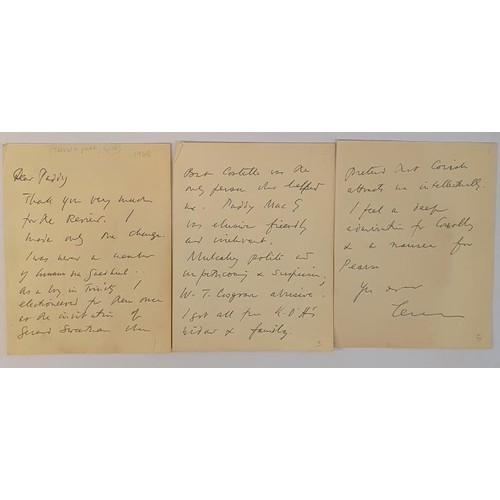 1968
Dear Paddy
Thank you very much
for the Review. I
made only one change
I was never a member
of Cumann na Gaedheal.
As a boy in Trinity I
electioneered for them once
on the invitation of
Gerard Sweetman when
But Costello was the
only person who helped
me. Paddy MacG
was elusive friendly
and irrelevant.
Mulcahy polite and
unforthcoming & suspicious,
W. T. Cosgrave abusive.
I got all from K-O'H's
widow & family.
3
Pretend that Corish
attracts me intellectually.
I feel a deep
admiration for Connolly
& a reverence for
Pearse
Yrs ever